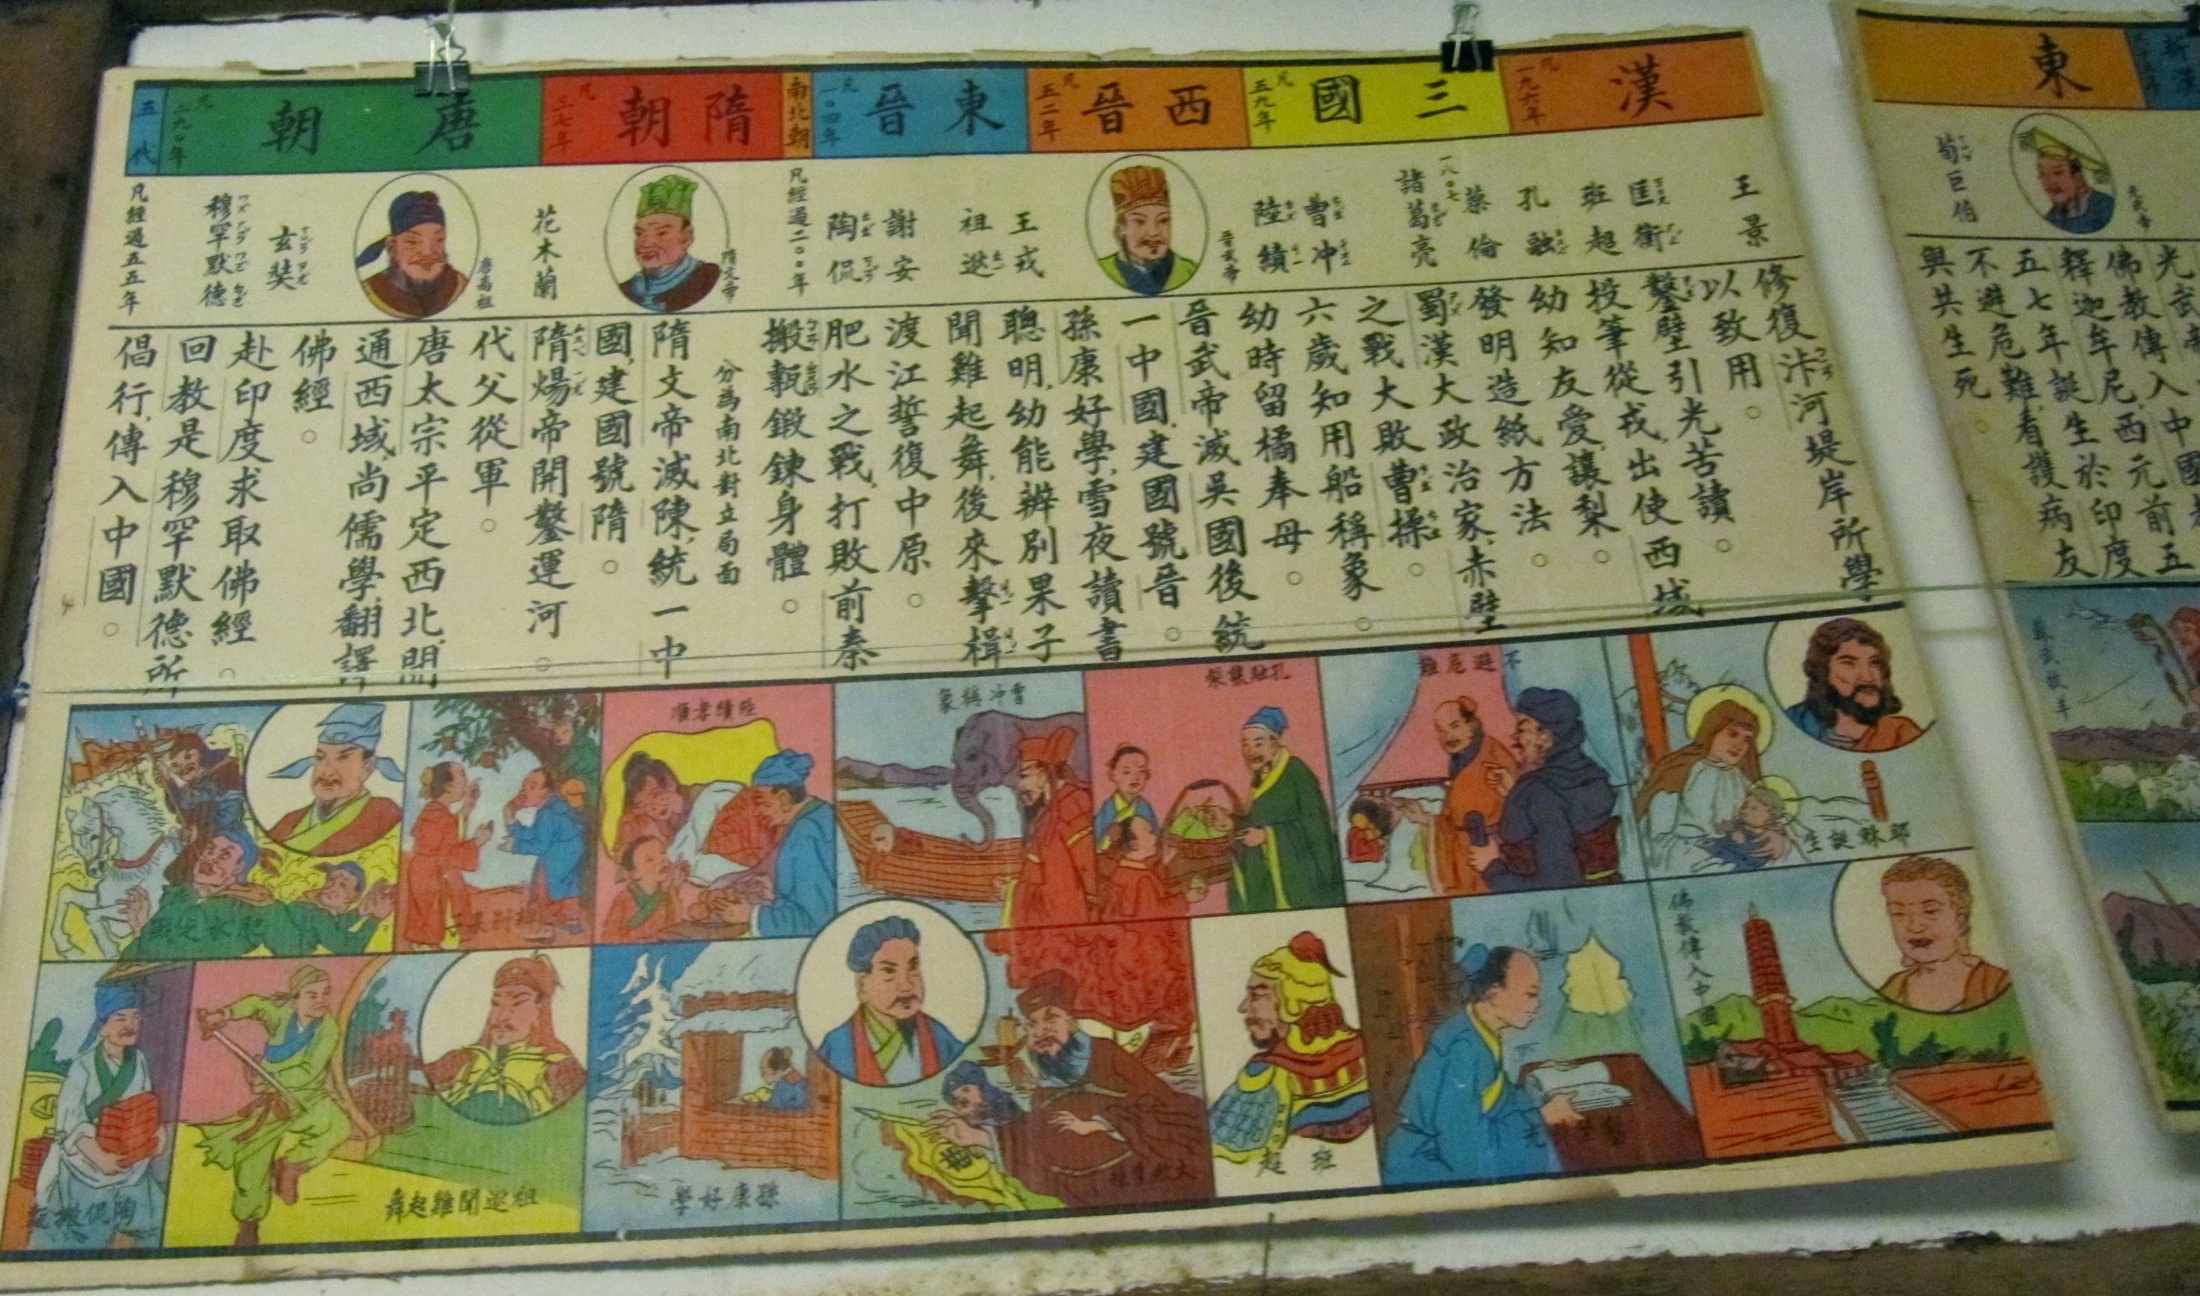 漢
凡一九六年
三國
凡五九年
西晉
凡五二年
東晉
凡一〇四年
南北朝
隋朝
凡三七年
唐朝
凡二九〇年
五代
王景
匡衡
班超
孔融
蔡倫
諸葛亮
曹冲
陸績
晉武帝
王戎
祖逖
謝安
陶侃
凡經過二〇〇年
隋文帝
花木蘭
唐高祖
玄奘
穆罕默德
凡經過五五年
修復汴河堤岸所學
以致用。
鑿壁引光苦讀。
投筆從戎出使西域
幼知友愛讓梨。
發明造紙方法。
蜀漢大政治家,赤壁
之戰大敗曹操。
六歲知用船稱象。
幼時留橘奉母。
晉武帝滅吳國後統
一中國,建國號晉。
孫康好學,雪夜讀書
聰明,幼能辨別果子
聞雞起舞,後來擊楫
渡江誓復中原。
肥水之戰,打敗前秦
搬甎鍛鍊身體。
分為南北對立局面
隋文帝滅陳,統一中
國,建國號隋。
隋煬帝開鑿運河。
代父從軍。
唐太宗平定西北,開
通西域尚儒學,翻譯
佛經。
赴印度求取佛經。
回教是穆罕默德所
倡行,傳入中國。
耶穌誕生
不避危難
孔融讓梨
曹冲稱象
陸績孝順
辨別果子
肥水之戰
佛教傳入中國
班超
大敗曹操
孫康好學
祖逖聞雞起舞
陶侃搬甎
東
荀巨伯
光武帝
佛教傳入中國
釋迦牟尼,西元前五
五七年誕生於印度
不避危難,看護病友
與共生死。
蘇武牧羊